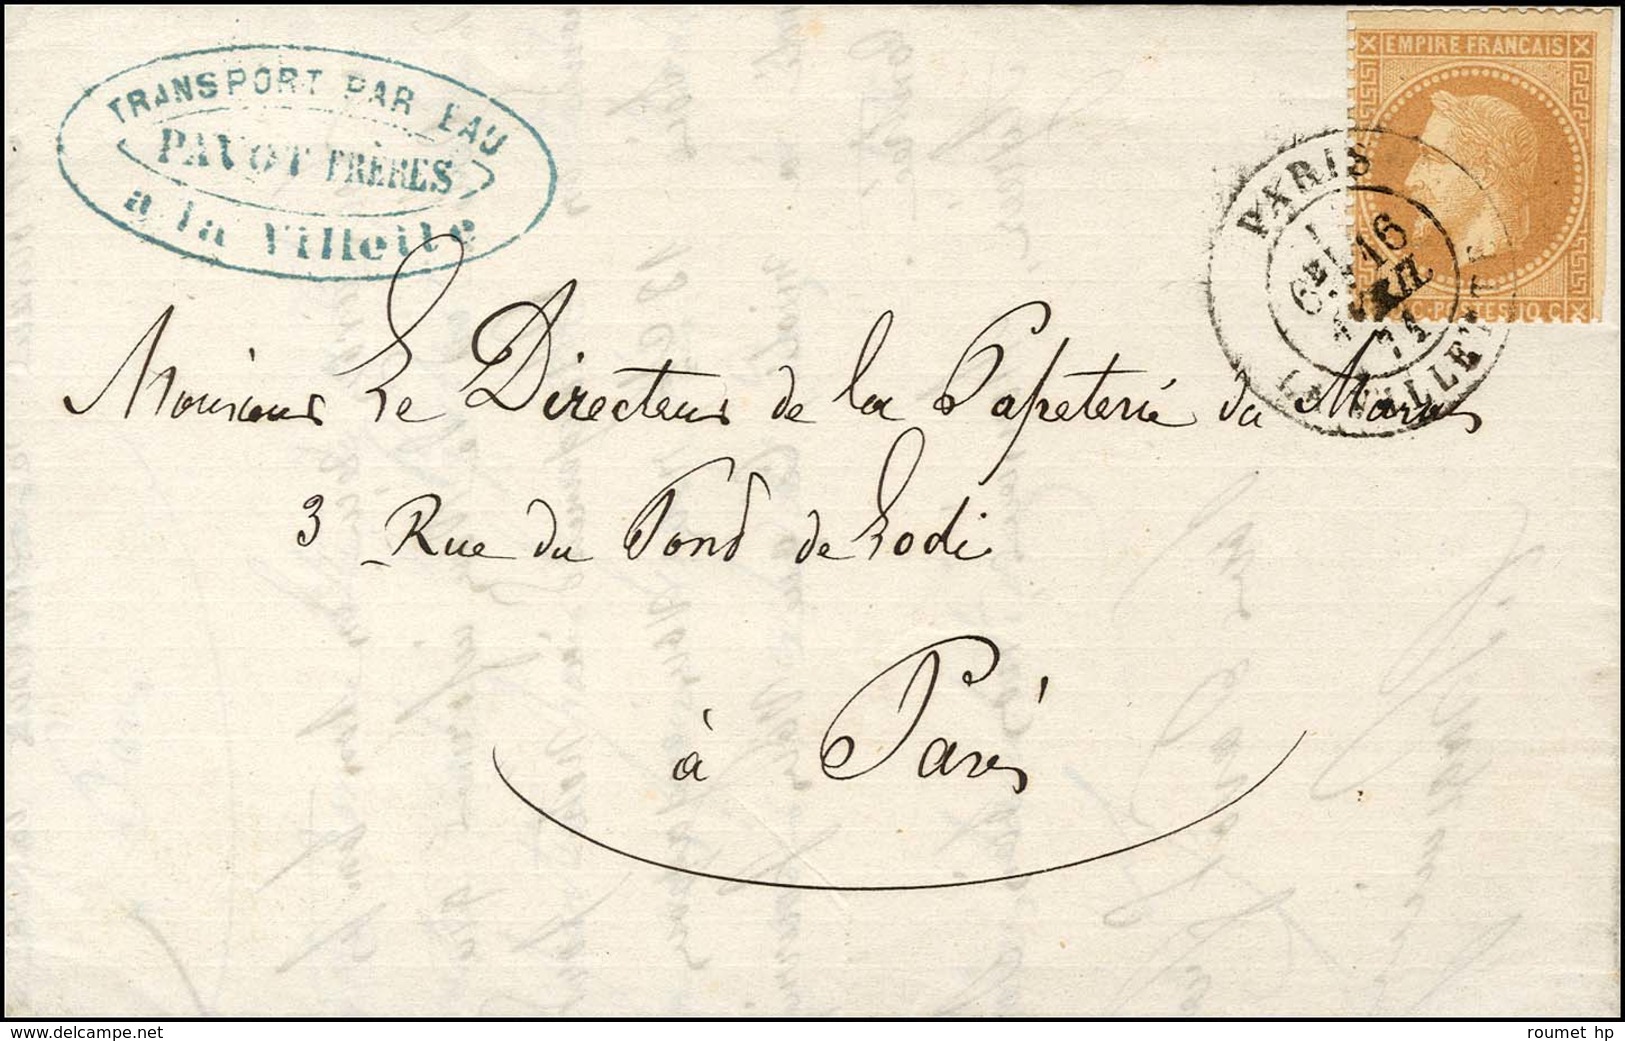 TRANSPORT PAR EAU
PAVOT FRÈRES
a la Villette
EMPIRE FRANCAIS
C-POSTES 10 C
PARIS
6E 16
AVRIL
71
LA VILLETTE
Monsieur Le Directeur de la Papeterie du Marais
3 Rue du Pont de Lodi
à Paris
delcampe.net
roumet hp